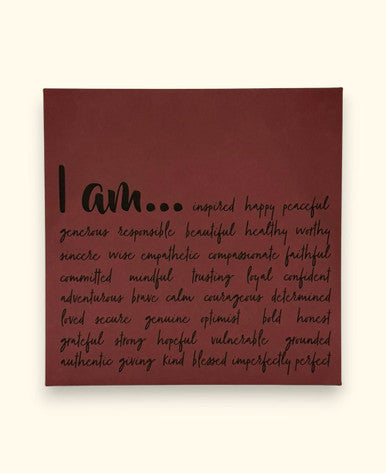 I am... inspired happy peaceful
generous responsible beautiful healthy worthy
sincere wise empathetic compassionate faithful
committed mindful trusting loyal confident
adventurous brave calm courageous determined
loved secure genuine optimist bold honest
grateful strong hopeful vulnerable grounded
authentic giving kind blessed imperfectly perfect